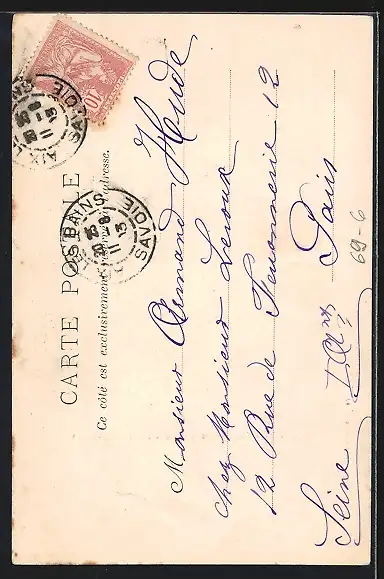 CARTE POSTALE
Ce côté est exclusivement réservé à l'adresse.
10
AIX LES BAINS
SAVOIE
BAINS
SAVOIE
Monsieur Armand Hude
chez Monsieur Leroux
12 Rue de Ferronnerie 12
Paris
Seine
69-6